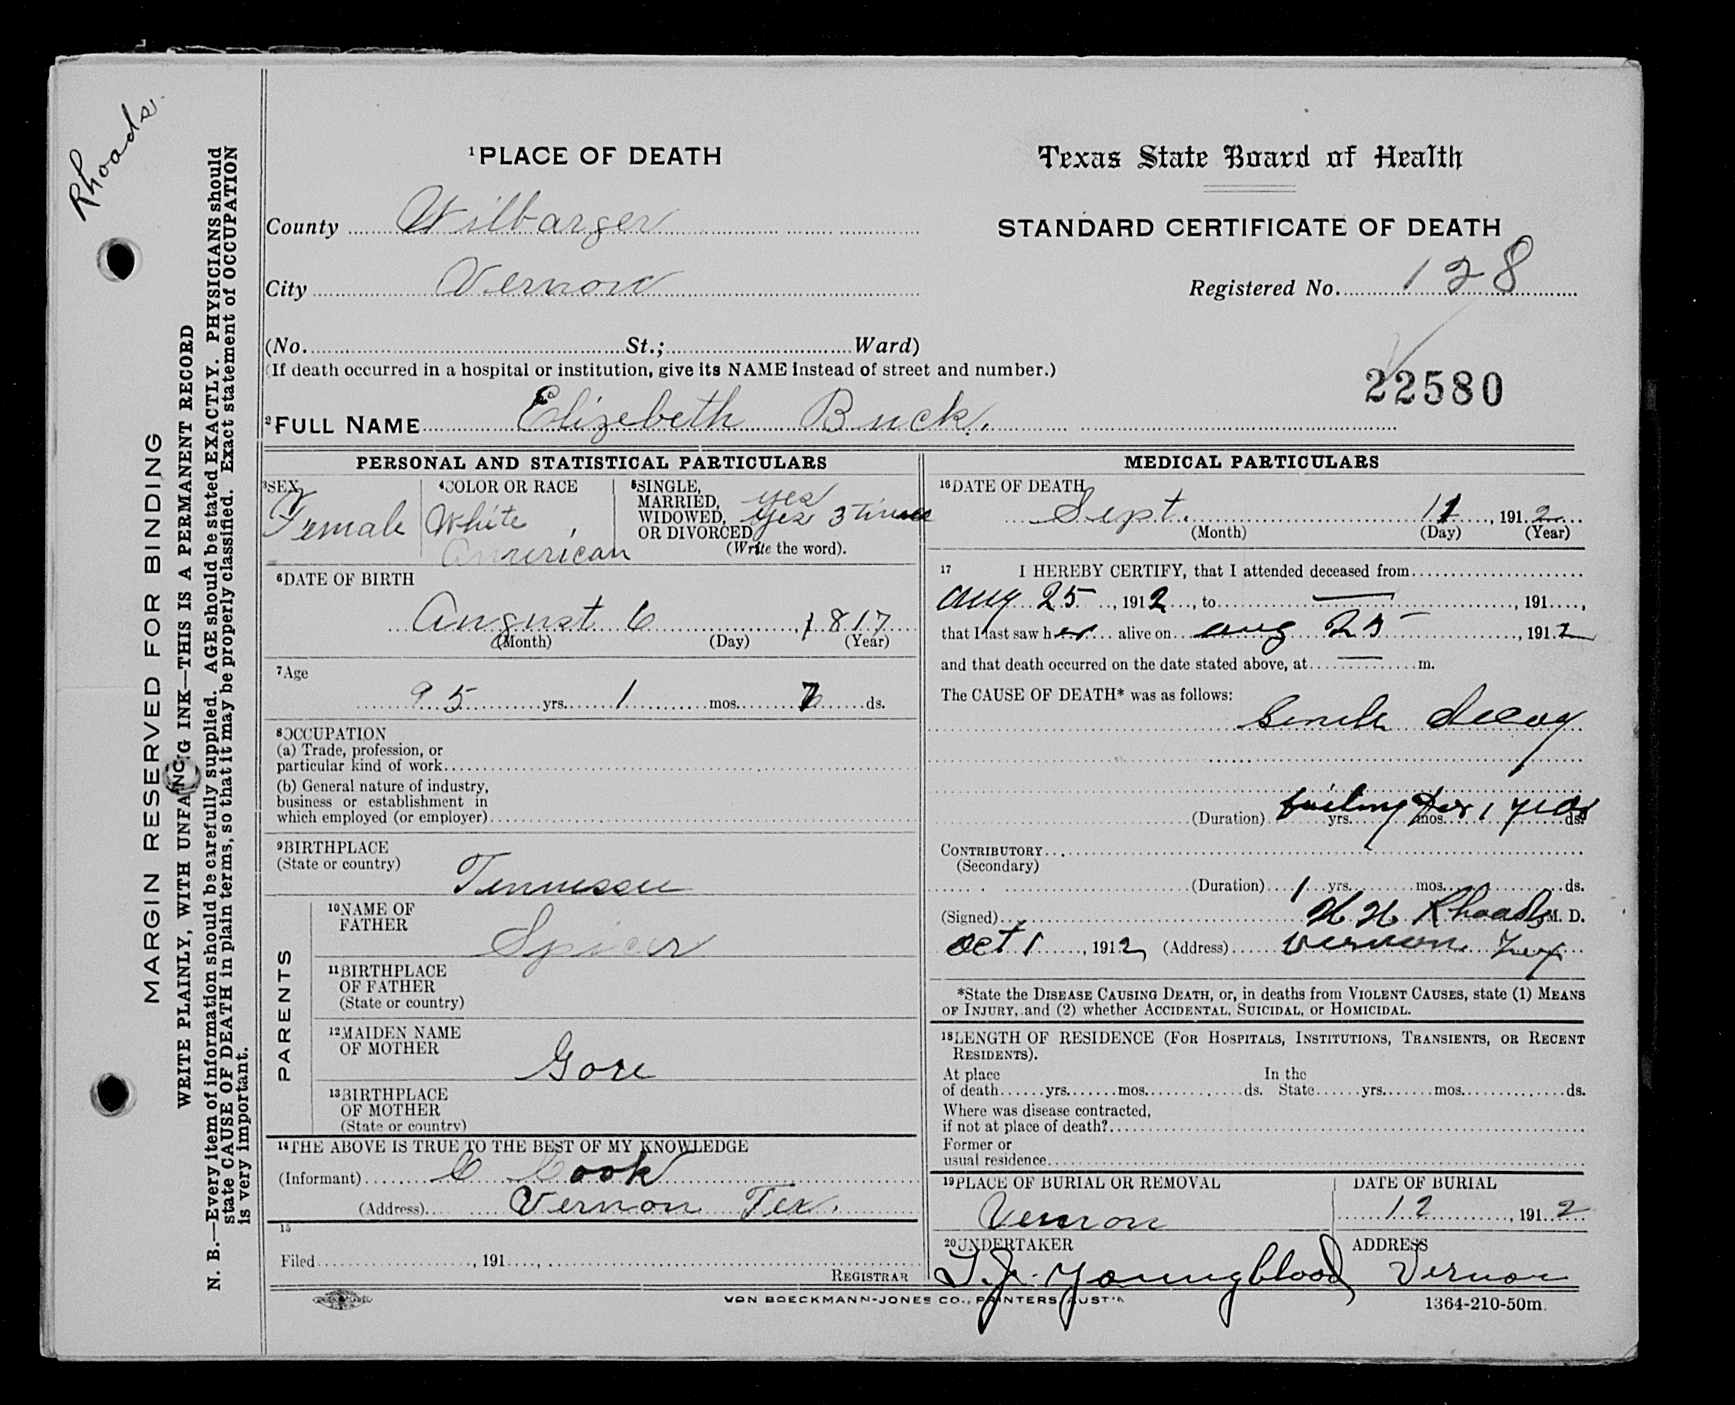 Rhoads
MARGIN RESERVED FOR BINDING
WRITE PLAINLY, WITH UNFADING INK—THIS IS A PERMANENT RECORD
N. B.—Every item of information should be carefully supplied. AGE should be stated EXACTLY. PHYSICIANS should
state CAUSE OF DEATH in plain terms, so that it may be properly classified. Exact statement of OCCUPATION
is very important.
1PLACE OF DEATH
County Wilbarger
City Vernon
(No. St.; Ward)
(If death occurred in a hospital or institution, give its NAME instead of street and number.)
2FULL NAME Elizebeth Buck.
Texas State Board of Health
STANDARD CERTIFICATE OF DEATH
Registered No. 128
22580
PERSONAL AND STATISTICAL PARTICULARS
3SEX
Female
4COLOR OR RACE
White
American
5SINGLE,
MARRIED, yes
WIDOWED, yes 3 times
OR DIVORCED
(Write the word).
6DATE OF BIRTH
August 6 1817
(Month) (Day) (Year)
7Age
95 yrs. 1 mos. ds.
8OCCUPATION
(a) Trade, profession, or
particular kind of work
(b) General nature of industry,
business or establishment in
which employed (or employer)
9BIRTHPLACE
(State or country)
Tennessee
PARENTS
10NAME OF
FATHER
Spicer
11BIRTHPLACE
OF FATHER
(State or country)
12MAIDEN NAME
OF MOTHER
Gore
13BIRTHPLACE
OF MOTHER
(State or country)
14THE ABOVE IS TRUE TO THE BEST OF MY KNOWLEDGE
(Informant) C Cook
(Address) Vernon Tex.
15
Filed , 191 ,
REGISTRAR
MEDICAL PARTICULARS
16DATE OF DEATH
Sept. 11, 1912
(Month) (Day) (Year)
17 I HEREBY CERTIFY, that I attended deceased from
Aug 25, 1912, to — , 191 ,
that I last saw her alive on Aug 25, 1912
and that death occurred on the date stated above, at — m.
The CAUSE OF DEATH* was as follows:
Senile decay
(Duration) failing for 1 year yrs. mos. ds.
CONTRIBUTORY
(Secondary)
(Duration) 1 yrs. mos. ds.
(Signed) H H Rhoads M. D.
Oct 1, 1912 (Address) Vernon Tex
*State the DISEASE CAUSING DEATH, or, in deaths from VIOLENT CAUSES, state (1) MEANS
OF INJURY, and (2) whether ACCIDENTAL, SUICIDAL, or HOMICIDAL.
18LENGTH OF RESIDENCE (FOR HOSPITALS, INSTITUTIONS, TRANSIENTS, OR RECENT
RESIDENTS).
At place In the
of death yrs. mos. ds. State yrs. mos. ds.
Where was disease contracted,
if not at place of death?
Former or
usual residence
19PLACE OF BURIAL OR REMOVAL
Vernon
DATE OF BURIAL
12, 1912
20UNDERTAKER
T. J. Youngblood
ADDRESS
Vernon
VON BOECKMANN-JONES CO., PRINTERS, AUSTIN
1364-210-50m.